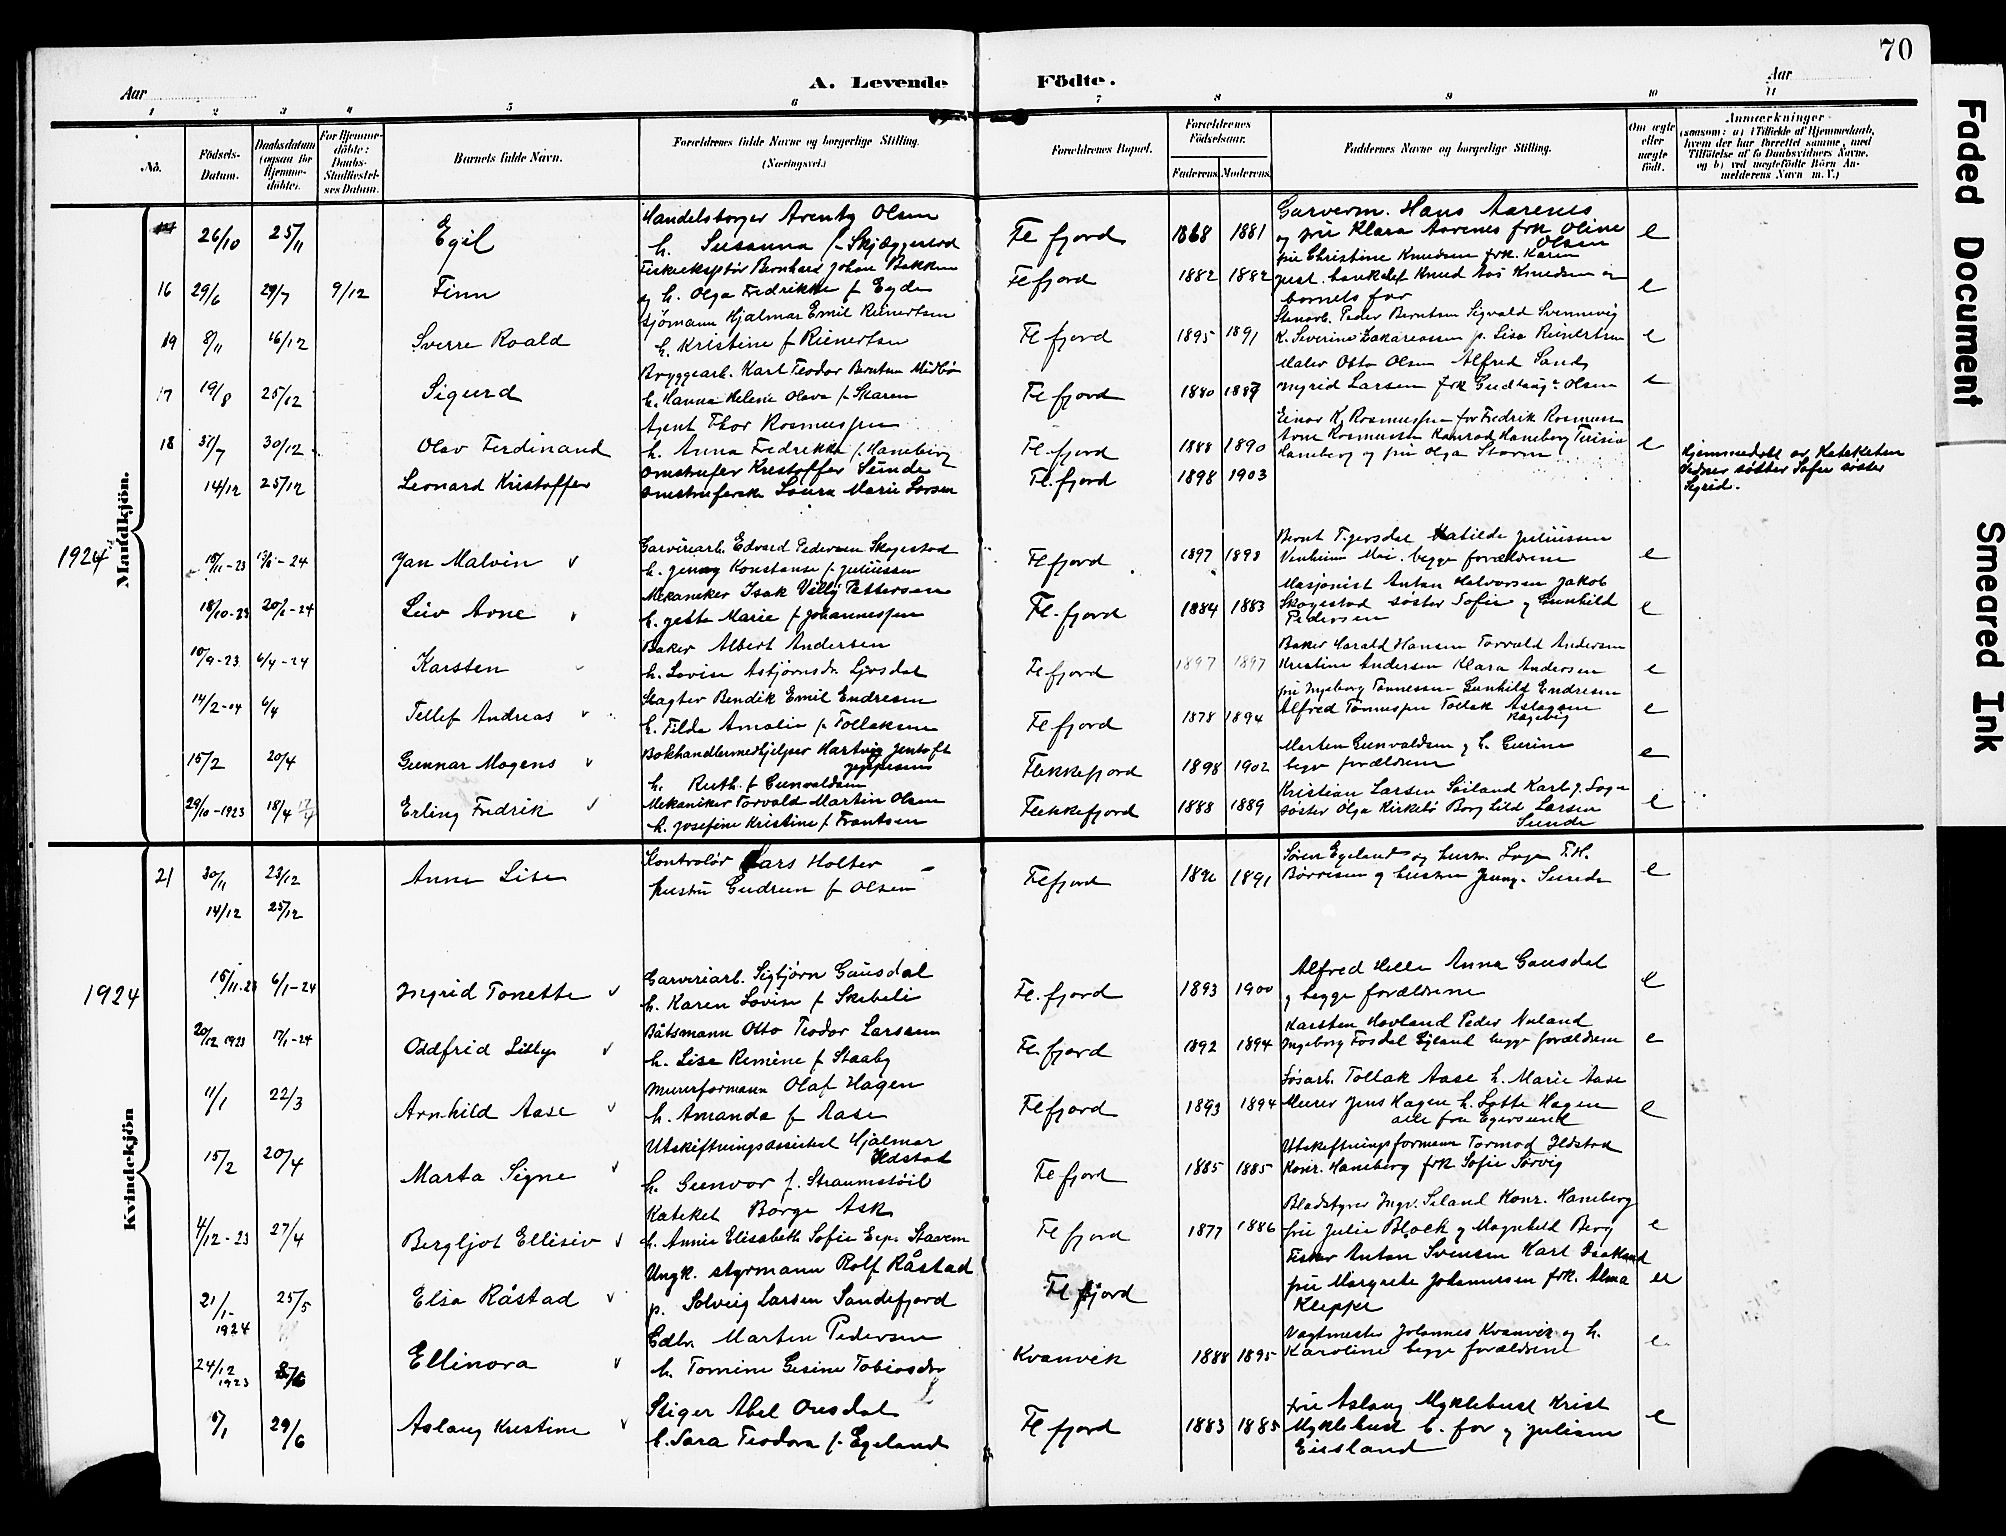 70
A. Levende Födte.
Aar
Aar
1 2 3 4 5 6 7 8 9 10 11
No.
Födsels-Datum.
Daabsdatum (ogsaa for Hjemmedöbte).
For Hjemmedöbte: Daabs-Stadfæstelses Datum.
Barnets fulde Navn.
Forældrenes fulde Navne og borgerlige Stilling. (Næringsvei.)
Forældrenes Bopæl.
Forældrenes Födselsaar.
Faderens. Moderens.
Faddernes Navne og borgerlige Stilling.
Om ægte eller uægte født.
Anmærkninger
(saasom: a) i Tilfælde af Hjemmedaab, hvem der har forrettet samme, med Tilföielse af to Daabsvidners Navne, og b) ved uægtefödte Börn Anmelderens Navn m. V.)
Mandkjön.
26/10 25/11 Egil
Handelsborger Arent Olsen
h. Susanna f. Skjæggestad
Fl.fjord 1868 1881
Garverm. Hans Aarenes
og fru Klara Aarenes frk Oline Olsen
e
16 29/6 29/7 9/12 Finn
Fiskeeksptör Bernhard Johan Bakken
og h. Olga Fredrikke f Eyde
Flfjord 1882 1882
fru Christine Knudsen frk. Karen
Just. bankchef Knud Aas Knudsen og
barnets far
e
19 8/11 16/12 Sverre Roald
Sjømann Hjalmar Emil Reinertsen
h. Kristine f Reinertsen
Fl fjord 1895 1891
Stenarb. Peder Berntsen Sigvald Svennevig
K. Severine Zakariassen p. Lisa Reinertsen
e
17 19/8 25/12 Sigurd
Bryggearb. Karl Teodor Berntsen Midbö
h. Hanna Helene Olava f. Skaren
Fl fjord 1880 1887
Maler Otto Olsen Alfred Sand
Ingrid Larsen frk Gudtrug Olsen
e
18 31/7 30/12 Olav Ferdinand
Agent Thor Rasmussen
h. Anna Fredrikke f. Haneberg
Fl.fjord 1888 1890
Einar K. Rasmussen for Fredrik Rasmussen
Arne Rasmussen Konrad Haneberg Terisia
Haneberg og fru Olga Storm
e
14/12 25/12 Leonard Kristoffer
Omstreifer Kristoffer Sunde
Omstreiferske Laura Marie Larsen
Fl.fjord 1898 1903
Hjemmedøbt av Kateketen
vidner søster Sofie søster
Sigrid.
1924
18/11-23 13/1-24 Jan Malvin v
Garveriarb. Edvard Pedersen Skogestad
h. Jenny Konstanse f. Juliussen
Flfjord 1897 1898
Bernt Tjersdal Matilde Juliussen
Venheim Moi. begge forældrene
e
18/10-23 20/1-24 Leiv Arne v
Mekaniker Isak Villy Pettersen
h. Jette Marie f. Johannessen
Fl.fjord 1884 1883
Masjonist Anton Halvorsen Jakob
Skogestad søster Sofie og Gunhild
Pedersen
e
10/9-23 6/4-24 Karsten
Baker Albert Andersen
h. Lovise Asbjørnsdr. Ljosdal
Flfjord 1897 1897
Baker Harald Hansen Torvald Andersen
Kristine Andersen Klara Andersen
e
14/2-24 6/4 Tellef Andreas v
Slagter Bendik Emil Endresen
h. Tilda Amalie f. Tollaksen
Fl fjord 1878 1894
fru Ingeborg Tønnessen Gunhild Endresen
Alfred Tønnessen Tollak Aslagsen
Rægevig
e
15/2 20/4 Gunnar Mogens v
Bokhandlermedhjelper Hartvig Jentoft
Jeppesen
h. Ruth f Gunvaldsen
Flekkefjord 1898 1902
Morten Gunvaldsen og h. Gurine
begge forældrene
e
29/10-1923 18/4 Erling Fredrik v
Mekaniker Torvald Martin Olsen
h. Josefine Kristine f. Frantsen
Flekkefjord 1888 1889
Kristian Larsen Seiland Karl J. Loga
søster Olga Kirkebø Borghild Larsen
Sunde
e
Kvindekjön
21 30/11 23/12 Anne Lise
Kontrolör Lars Holter
hustru Gudrun f Olsen
Flfjord 1896 1891
Søren Egeland og hustru Inga T.H.
Børresen og hustru Jenny Sunde
e
14/12 25/12
1924
15/11-23 6/1-24 Ingrid Tonette v
Garveriarb. Sigbjørn Gausdal
h. Karen Lovise f Skibeli
Fl.fjord 1893 1900
Alfred Helle Anna Gausdal
og begge forældrene
e
20/12 1923 17/1-24 Oddfrid Lilly v
Båtsmann Otto Teodor Larssen
h. Lise Remine f Staaby
Fl.fjord 1892 1894
Karsten Hovland Peder Nuland
Ingeborg Fosdal Eiland begge forældrene
e
11/1 22/3 Arnhild Aase v
Murerformann Olaf Hagen
h. Amanda f Aase
Flfjord 1893 1894
Løsarb. Tollak Aase h. Marie Aase
Murer Jens Hagen h. Lotte Hagen
alle fra Egersund
e
15/2 20/4 Marta Signe v
Utskiftningsassistent Hjalmar
Ildstad
h. Gunvor f. Straumstöil
Fl fjord 1885 1885
Utskiftningsformann Tormod Ildstad
Konr. Haneberg frk Sofie Sørvig
4/12-23 27/4 Bergljot Ellisiv v
Kateket Borge Ask
h. Annie Elisabeth Sofie Esp. Staavem
Fl fjord 1877 1886
Bladstyrer Ingv. Seland Konr. Haneberg
fru Julie Block og Magnhild Berg
e
21/1-1924 25/5 Elsa Råstad v
Ungk. styrmann Rolf Råstad
p. Solveig Larsen Sandefjord
Fl fjord
Fisker Anton Svensen Karl Isakland
fru Margrete Johannesen frk. Alma
Kleppe
u
24/12 1923 8/6 Ellinora v
Gdbr. Marten Pedersen
h. Tomine Gesine Tobiasdr
Kvanvik 1888 1895
Vagtmester Johannes Kvanvik og h.
Karoline begge forældrene
e
5/1 29/6 Aslaug Kristine v
Stiger Abel Ousdal
h. Sara Teodora f. Egeland
Fl fjord 1883 1885
fru Aslaug Myklebust Krist
Myklebust b. far og Juliane
Eiesland
e
Faded Document
Smeared Ink